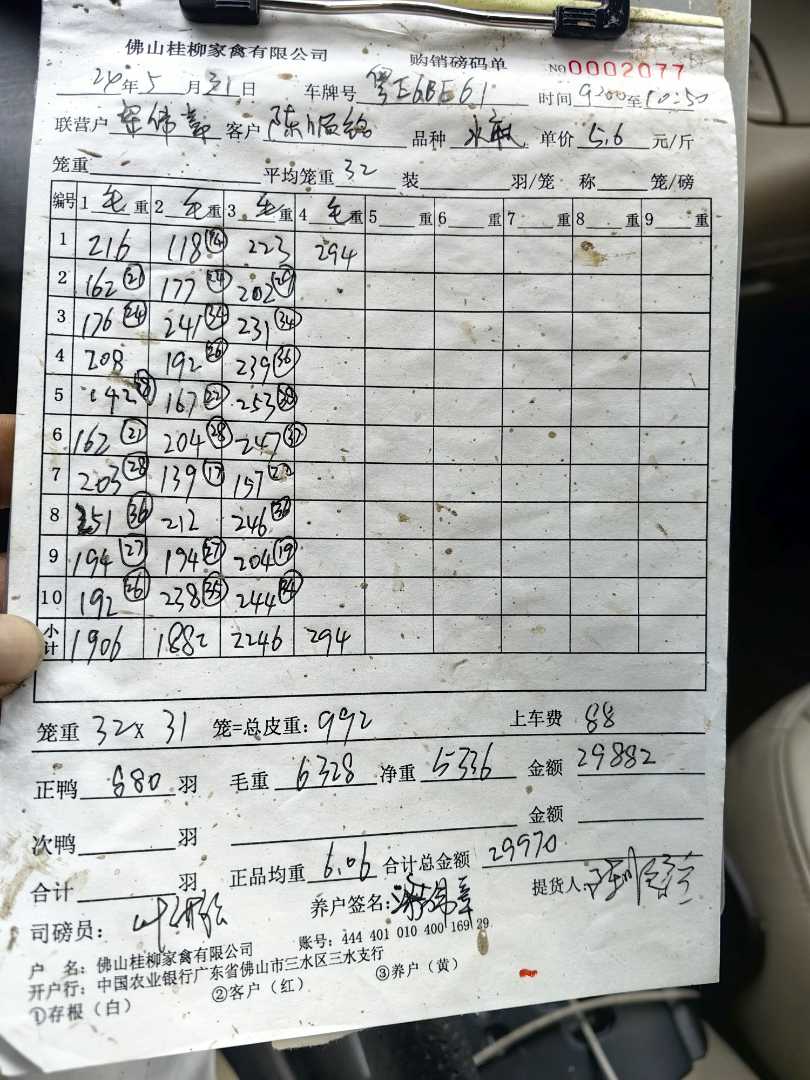 佛山桂柳家禽有限公司 购销磅码单 NO 0002077
24年5月31日 车牌号 粤E6BE61 时间 9:00至10:50
联营户 客户 陈 品种 水 单价 5.6 元/斤
笼重 平均笼重 32 装 羽/笼 称 笼/磅
编号 1 毛 重 2 毛 重 3 毛 重 4 毛 重 5 重 6 重 7 重 8 重 9 重
1 216 118 (14) 223 294
2 162 (21) 177 (24) 202 (29)
3 176 (24) 241 (34) 231 (34)
4 208 192 (26) 239 (36)
5 142 167 (22) 253 (38)
6 162 (21) 204 (28) 247 (37)
7 203 (28) 139 (17) 157 (22)
8 251 (36) 212 246
9 194 (27) 194 (27) 204 (19)
10 192 (26) 238 (35) 244 (34)
小计 1906 1882 2246 294
笼重 32 x 31 笼=总皮重: 992 上车费 88
正鸭 880 羽 毛重 6328 净重 5336 金额 29882
次鸭 羽 金额
合计 羽 正品均重 6.06 合计总金额 29970
司磅员: 养户签名: 提货人:
户 名: 佛山桂柳家禽有限公司 账号: 444 401 010 400 169 29
开户行: 中国农业银行广东省佛山市三水区三水支行
①存根（白） ②客户（红） ③养户（黄）